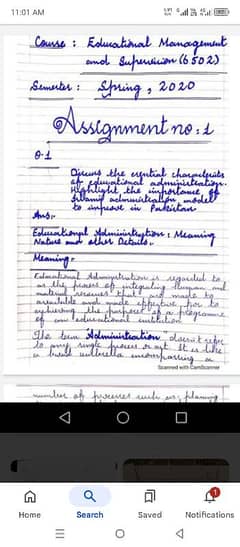 11:01 AM
Course : Educational Management
and Supervision (6502)
Semester : Spring, 2020
Assignment no: 1
Q.1
Discuss the essential characteristics
of educational administration.
Highlight the importance of
Islamic administration model
to impose in Pakistan
Ans:-
Educational Administration : Meaning
Nature and other Details:-
Meaning:-
Educational Administration is regarded to
as the process of integrating human and
material resources that are made to
available and made effective for to
achieving the purposes of a programme
of an educational institution
The term "Administration" doesn't refer
to any single process or act. It is like
a broad umbrella encompassing a
Scanned with CamScanner
number of processes such as: planning
Home
Search
Saved
1
Notifications